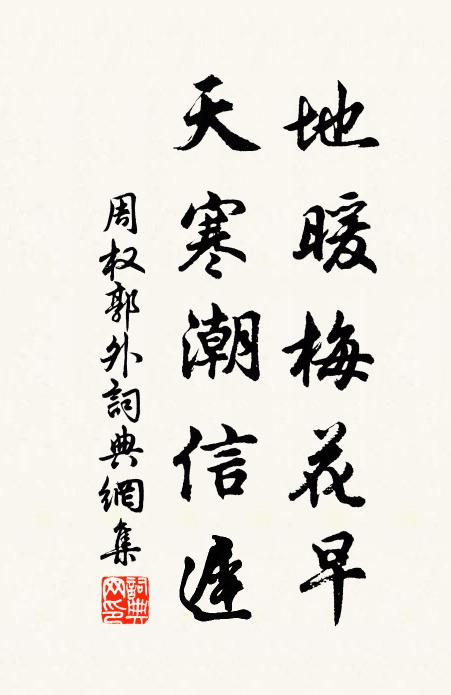 地暖梅花早
天寒潮信遲
周权郭外詞典網集
詞典网印